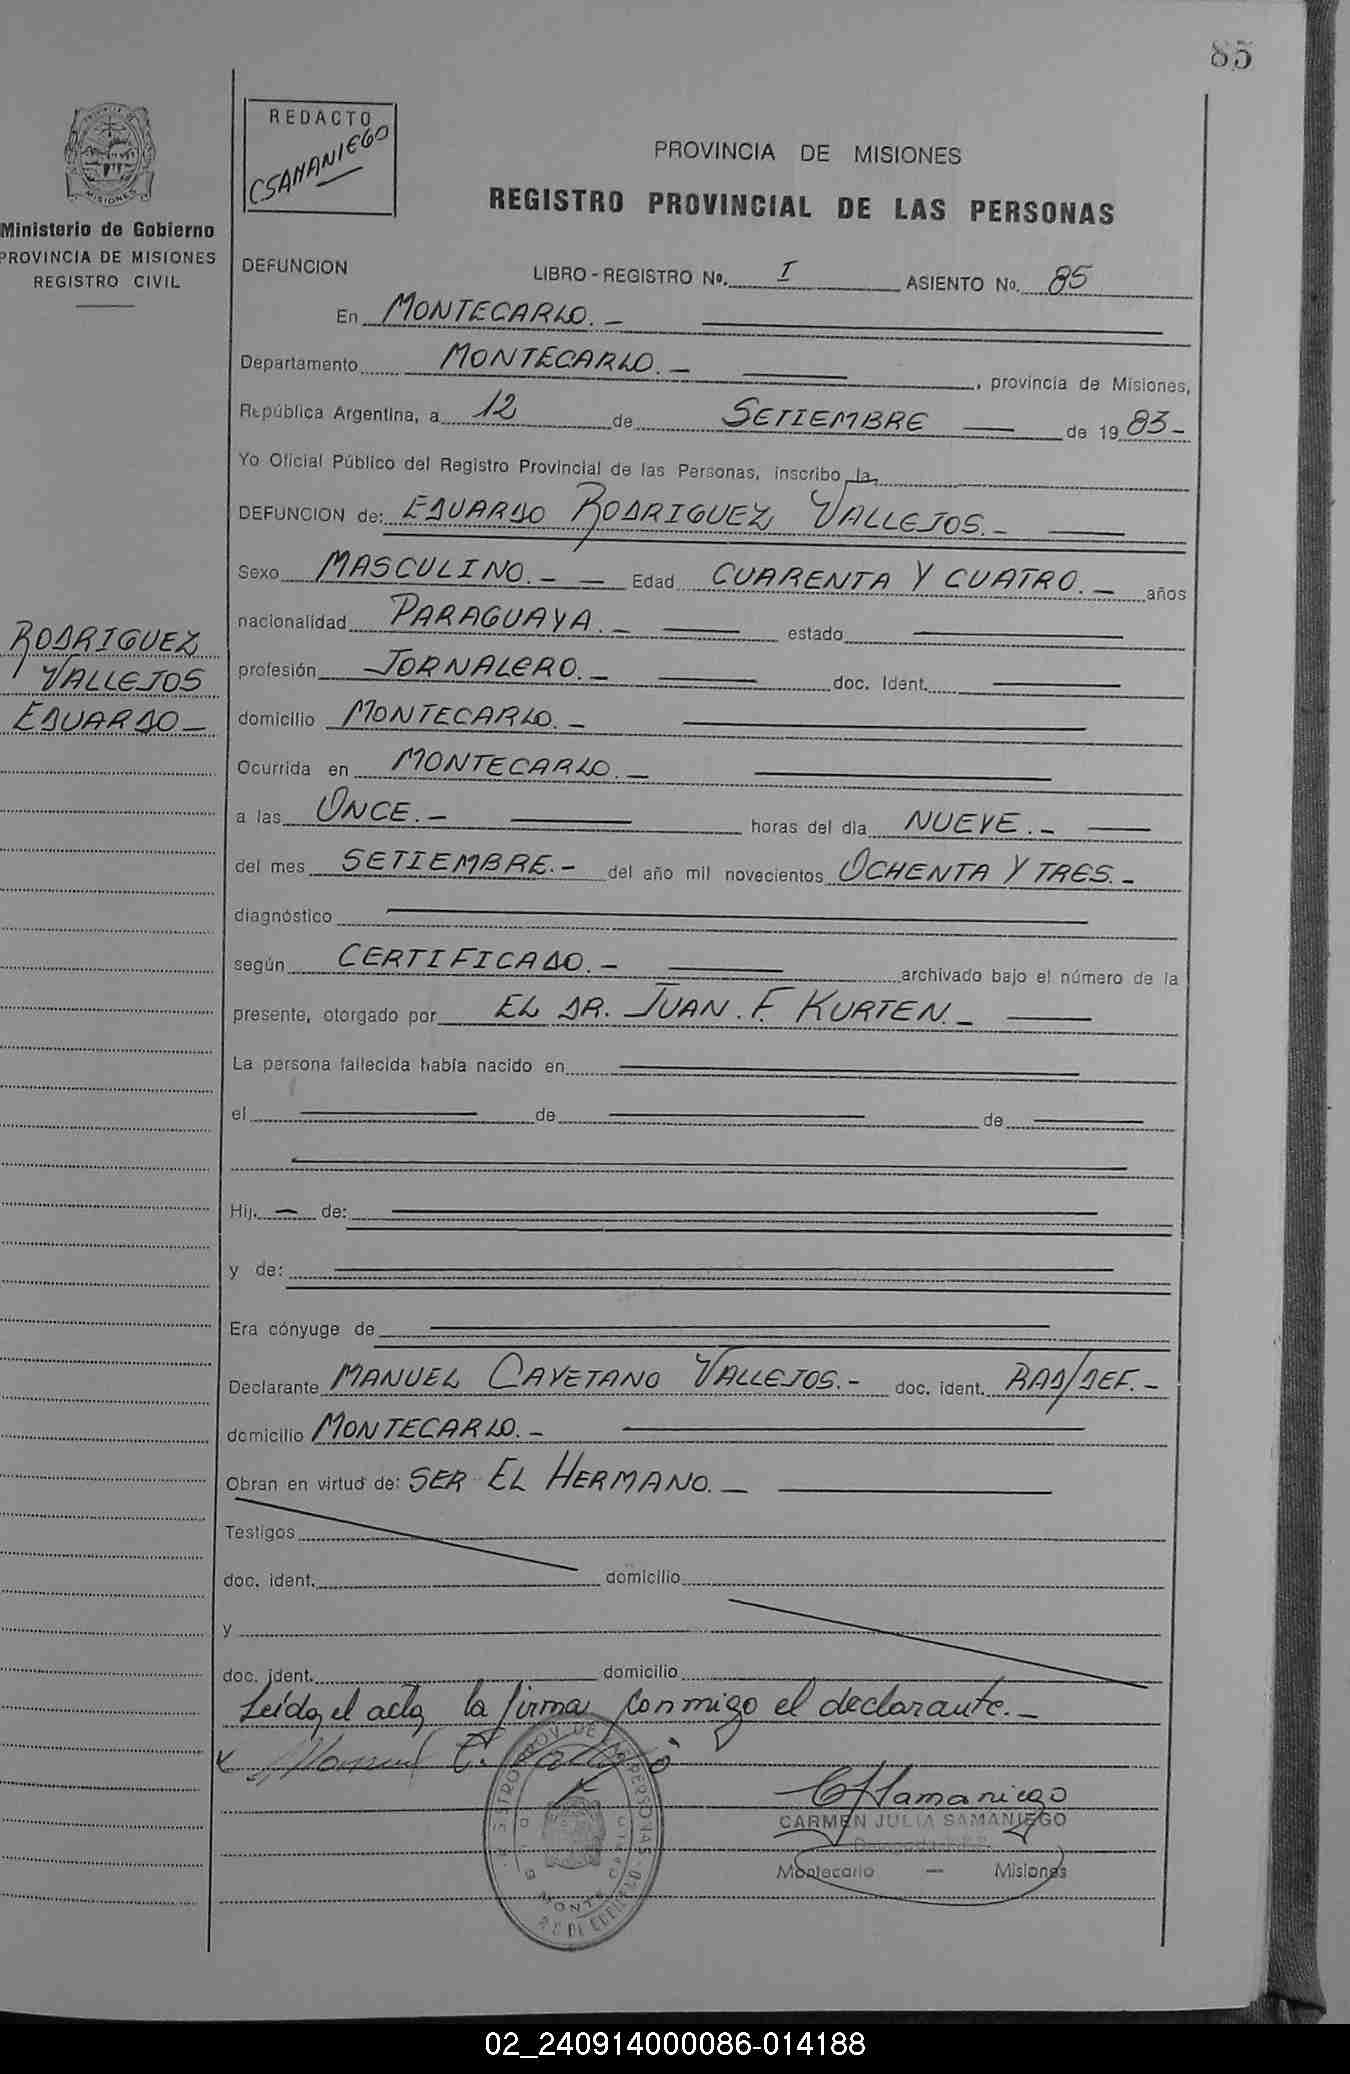 85
REDACTO
CSAMANIEGO
PROVINCIA DE MISIONES
REGISTRO PROVINCIAL DE LAS PERSONAS
MISIONES
Ministerio de Gobierno
PROVINCIA DE MISIONES
REGISTRO CIVIL
DEFUNCION LIBRO - REGISTRO No. I ASIENTO No. 85
En MONTECARLO. -
Departamento MONTECARLO. - , provincia de Misiones,
República Argentina, a 12 de SETIEMBRE de 19 83-
Yo Oficial Público del Registro Provincial de las Personas, inscribo la
DEFUNCION de: EDUARDO RODRIGUEZ VALLEJOS. -
Sexo MASCULINO. - Edad CUARENTA Y CUATRO. - años
nacionalidad PARAGUAYA. - estado
profesión JORNALERO. - doc. Ident.
domicilio MONTECARLO. -
Ocurrida en MONTECARLO. -
a las ONCE. - horas del día NUEVE. -
del mes SETIEMBRE. - del año mil novecientos OCHENTA Y TRES. -
diagnóstico
según CERTIFICADO. - archivado bajo el número de la
presente, otorgado por EL DR. JUAN. F. KURTEN. -
La persona fallecida había nacido en
el de de
Hij. - de:
y de:
Era cónyuge de
Declarante MANUEL CAYETANO VALLEJOS. - doc. ident. RAD/DEF. -
domicilio MONTECARLO. -
Obran en virtud de: SER EL HERMANO. -
Testigos
doc. ident. domicilio
y
doc. ident. domicilio
Leída el acta, la firma conmigo el declarante. -
RODRIGUEZ
VALLEJOS
EDUARDO -
Manuel C.
CJSamaniego
CARMEN JULIA SAMANIEGO
Montecarlo - Misiones
02_240914000086-014188